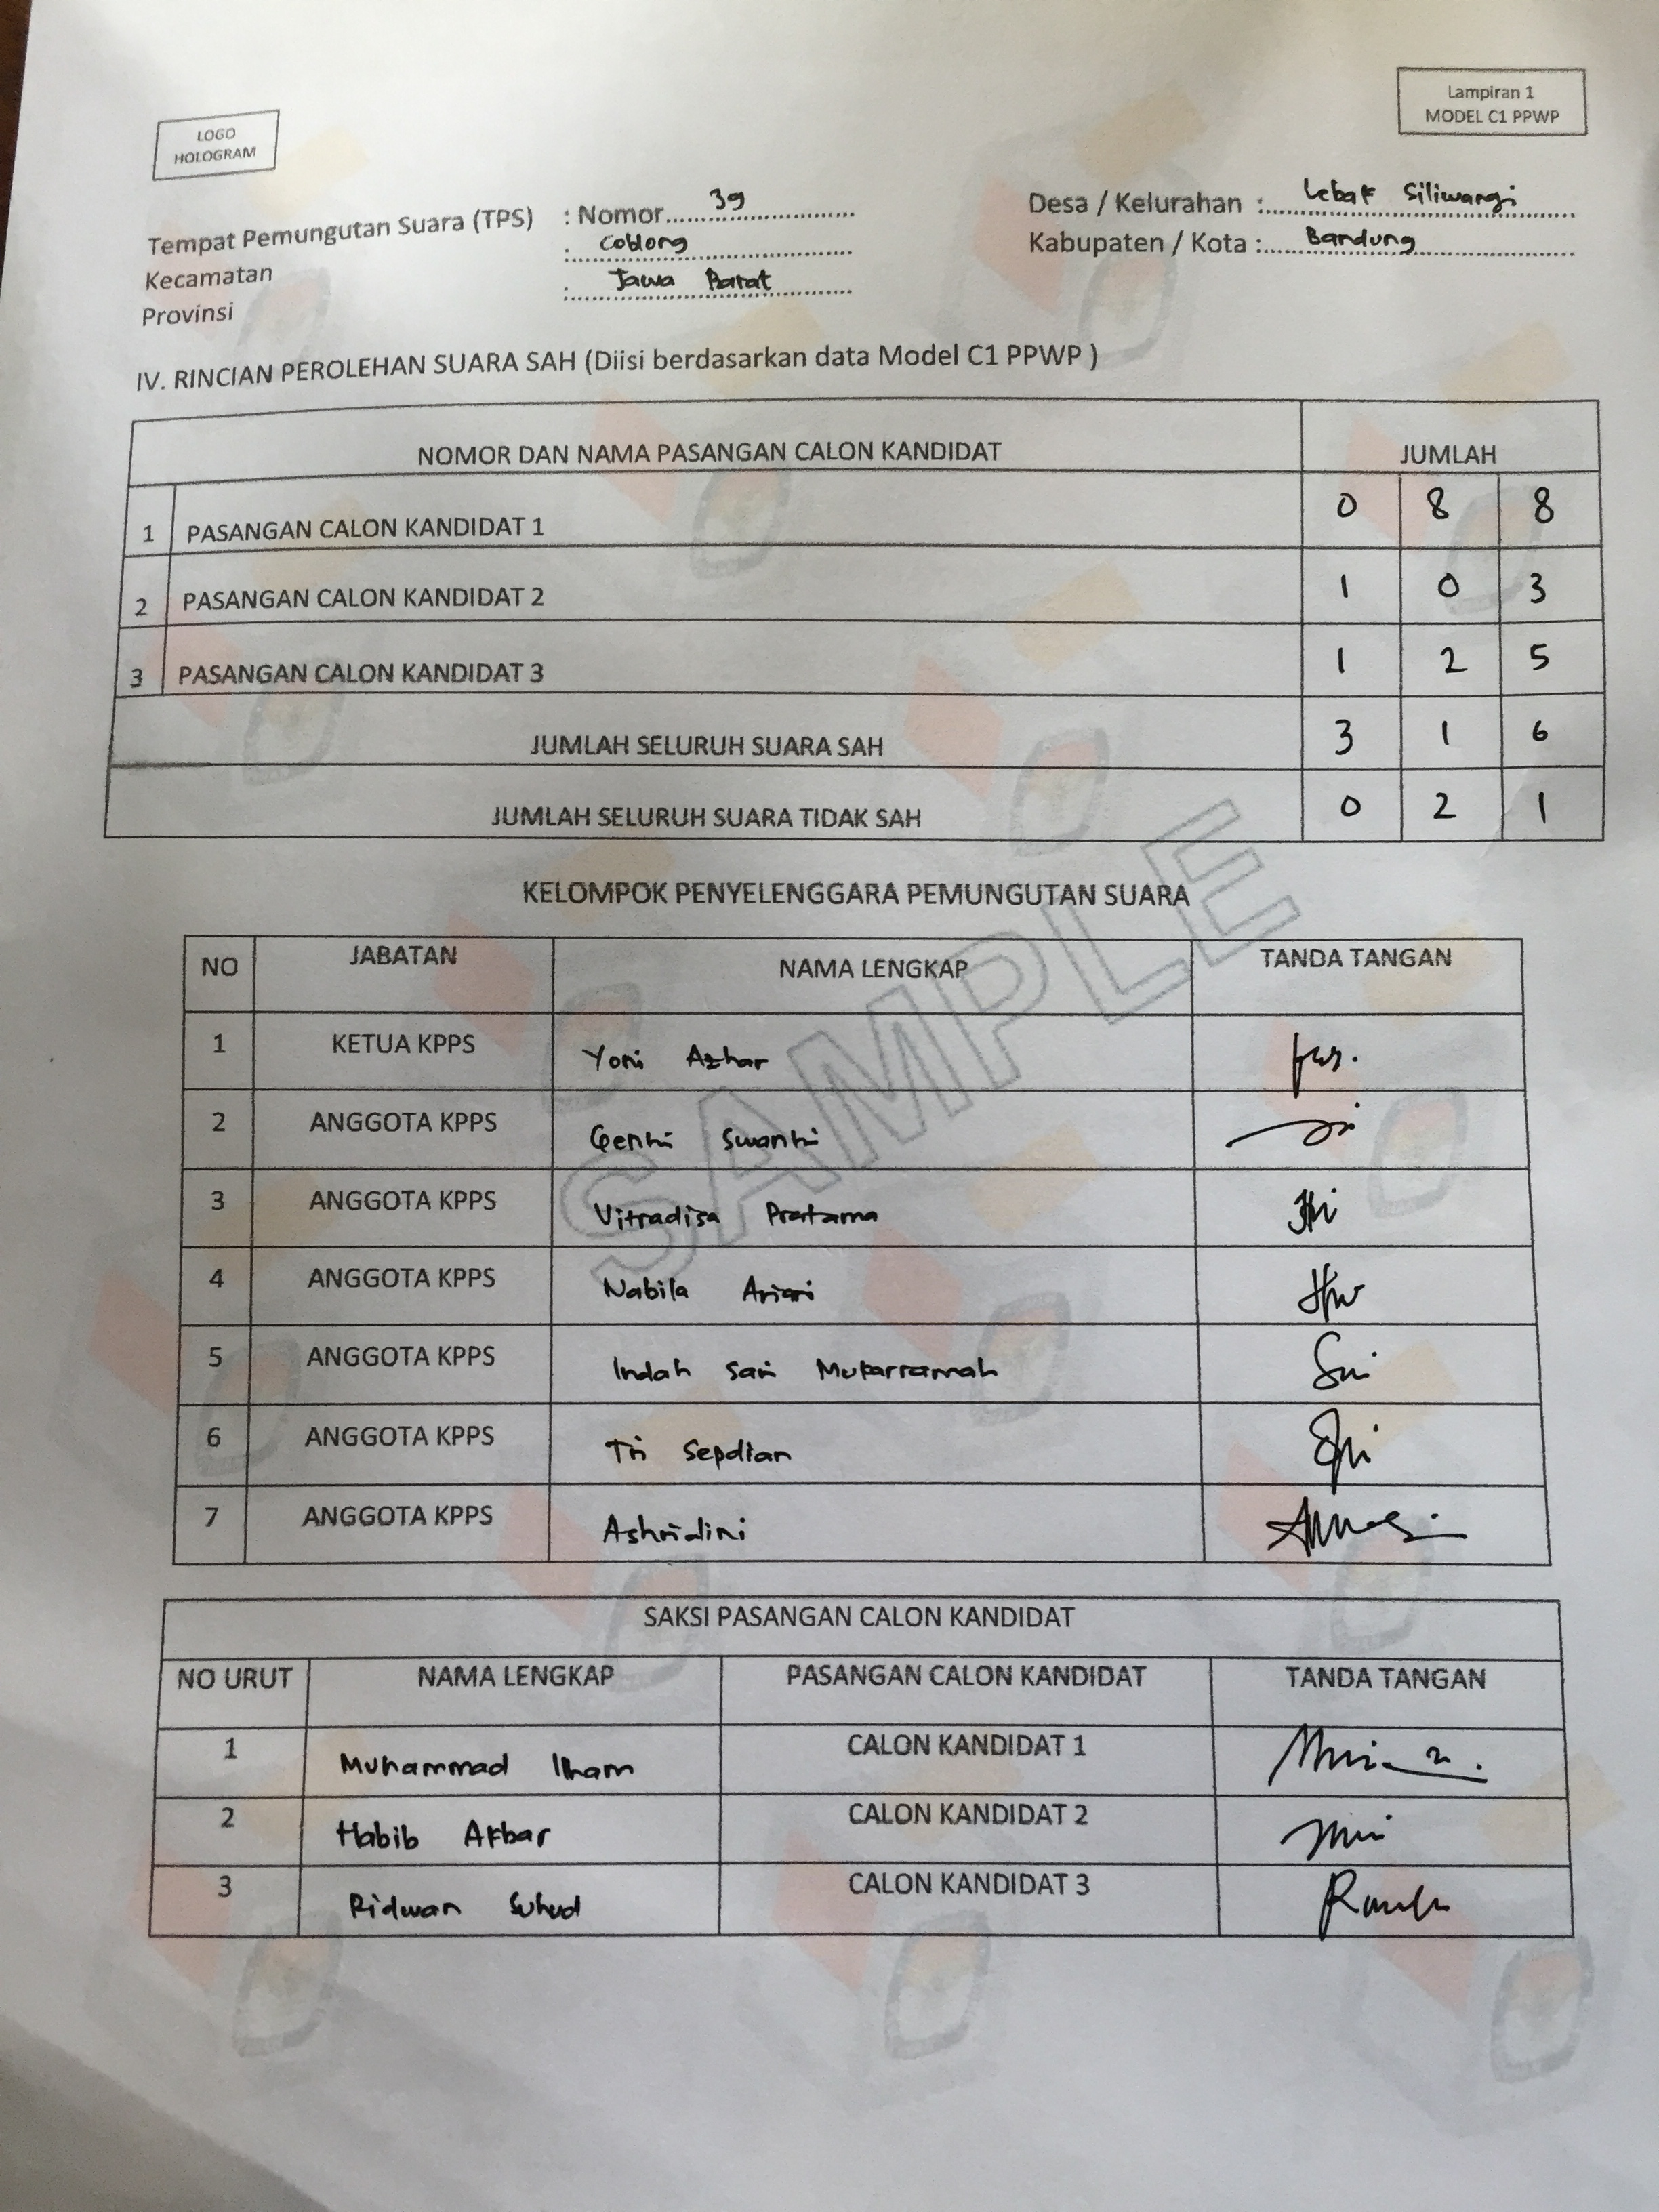 LOGO
HOLOGRAM
Lampiran 1
MODEL C1 PPWP
Tempat Pemungutan Suara (TPS) : Nomor 39
Desa / Kelurahan : Lebak Siliwangi
Kecamatan : Coblong
Kabupaten / Kota : Bandung
Provinsi : Jawa Barat
IV. RINCIAN PEROLEHAN SUARA SAH (Diisi berdasarkan data Model C1 PPWP )
NOMOR DAN NAMA PASANGAN CALON KANDIDAT JUMLAH
1 PASANGAN CALON KANDIDAT 1 0 8 8
2 PASANGAN CALON KANDIDAT 2 1 0 3
3 PASANGAN CALON KANDIDAT 3 1 2 5
JUMLAH SELURUH SUARA SAH 3 1 6
JUMLAH SELURUH SUARA TIDAK SAH 0 2 1
SAMPLE
KELOMPOK PENYELENGGARA PEMUNGUTAN SUARA
NO JABATAN NAMA LENGKAP TANDA TANGAN
1 KETUA KPPS Yoni Azhar
2 ANGGOTA KPPS Genti Swanti
3 ANGGOTA KPPS Vitradisa Pratama
4 ANGGOTA KPPS Nabila
5 ANGGOTA KPPS Indah Sari Mukarramah
6 ANGGOTA KPPS Tri Sepdian
7 ANGGOTA KPPS Ashridini
SAKSI PASANGAN CALON KANDIDAT
NO URUT NAMA LENGKAP PASANGAN CALON KANDIDAT TANDA TANGAN
1 Muhammad Ilham CALON KANDIDAT 1
2 Habib Akbar CALON KANDIDAT 2
3 Ridwan Suhud CALON KANDIDAT 3